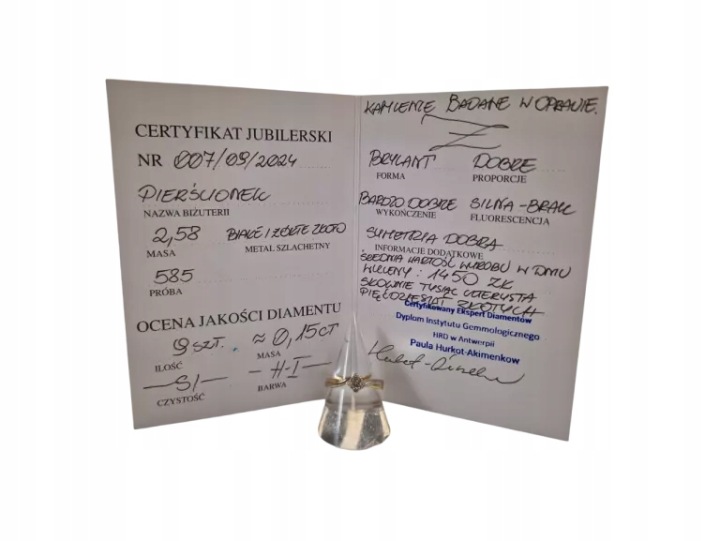 CERTYFIKAT JUBILERSKI
NR 007/09/2024
PIERŚCIONEK
NAZWA BIŻUTERII
2,58 BIAŁE I ŻÓŁTE ZŁOTO
MASA METAL SZLACHETNY
585
PRÓBA
OCENA JAKOŚCI DIAMENTU
9 SZT. ≈ 0,15CT
ILOŚĆ MASA
SI H-I
CZYSTOŚĆ BARWA
KAMIENIE BADANE W OPRAWIE.
BRYLANT DOBRE
FORMA PROPORCJE
BARDZO DOBRE SILNA-BRAK
WYKOŃCZENIE FLUORESCENCJA
SYMETRIA DOBRA
INFORMACJE DODATKOWE
ŚREDNIA WARTOŚĆ WYROBU W DNIU
WYCENY: 1450 ZŁ
SŁOWNIE TYSIĄC CZTERYSTA
PIĘĆDZIESIĄT ZŁOTYCH
Certyfikowany Ekspert Diamentów
Dyplom Instytutu Gemmologicznego
HRD w Antwerpii
Paula Hurkot-Akimenkow